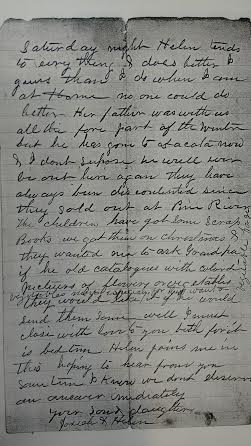 Saturday night Helen tends
to every thing & does better I
guess than I do when I am
at home no one could do
better Her father was with us
all the fore part of the winter
but he has gone to atacata now
& I dont supose he will ever
be out here again they have
always been discontented since
they sold out at Pine River
The children have got some Scrap
Books we got them on Christmas &
they wanted me to ask Grandpa
if he old catalogues with colord
pictures of flowers or vegetables
they would like it if he would
send them some well I must
close with love to you both for it
is bed time Helen joins me in
this hoping to hear from you
some time I know we dont deserve
an answer imediately
your Son & daughter
Josiah & Helen